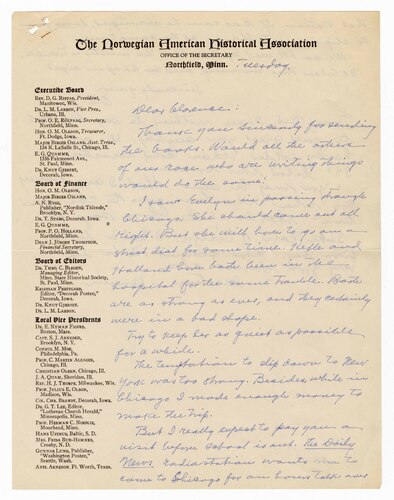 The Norwegian American Historical Association
OFFICE OF THE SECRETARY
Northfield, Minn.
Tuesday.
Executive Board
REV. D. G. RISTAD, President,
Manitowoc, Wis.
DR. L. M. LARSON, Vice Pres.,
Urbana, Ill.
PROF. O. E. RÖLVAAG, Secretary,
Northfield, Minn.
HON. O. M. OLESON, Treasurer,
Ft. Dodge, Iowa.
MAJOR BIRGER OSLAND, Asst. Treas.,
134 N. LaSalle St., Chicago, Ill.
E. G. QUAMME,
1356 Fairmount Ave.,
St. Paul, Minn.
DR. KNUT GJERSET,
Decorah, Iowa.
Board of Finance
HON. O. M. OLESON,
MAJOR BIRGER OSLAND,
A. N. RYGG,
Publisher, "Nordisk Tidende,"
Brooklyn, N. Y.
DR. T. STABO, Decorah, Iowa.
E. G. QUAMME,
PROF. P. O. HOLLAND,
Northfield, Minn.
DEAN J. JÖRGEN THOMPSON,
Financial Secretary,
Northfield, Minn.
Board of Editors
DR. THEO. C. BLEGEN,
Managing Editor,
Minn. State Historical Society,
St. Paul, Minn.
KRISTIAN PRESTGARD,
Editor, "Decorah Posten,"
Decorah, Iowa.
DR. KNUT GJERSET,
DR. L. M. LARSON.
Local Vice Presidents
DR. E. NYMAN FIGVED,
Boston, Mass.
CAPT. S. J. ARNESEN,
Brooklyn, N. Y.
CONSUL M. MOE,
Philadelphia, Pa.
PROF. C. MARTIN ALSAGER,
Chicago, Ill.
CHRISTIAN OLSEN, Chicago, Ill.
J. A. QUAM, Sheridan, Ill.
REV. H. J. THORPE, Milwaukee, Wis.
PROF. JULIUS E. OLSON,
Madison, Wis.
COL. CHR. BRANDT, Decorah, Iowa.
DR. G. T. LEE, Editor,
"Lutheran Church Herald,"
Minneapolis, Minn.
PROF. HERMAN C. NORDLIE,
Moorhead, Minn.
HANS USTRUD, Baltic, S. D.
MRS. FRIDA BUE-HOMNES,
Crosby, N. D.
GUNNAR LUND, Publisher,
"Washington Posten,"
Seattle, Wash.
AXEL ARNESON, Ft. Worth, Texas.
Dear Clarence.
Thank you sincerely for sending
the books. Would all the others
of our race who are writing things
would do the same!
I saw Evelyn in passing through
Chicago. She should come out all
right. But she will have to go on a
strict diet for some time.
Holland have both been in the
hospital for the same trouble. Both
are as strong as ever, and they certainly
were in a bad shape.
Try to keep her as quiet as possible
for a while.
The temptation to slip down to New
York was too strong. Besides, while in
Chicago I made enough money to
make the trip.
But I really expect to pay you a
visit before school is out. The Daily
News radiostation wants me to
come to Chicago for an hours talk over